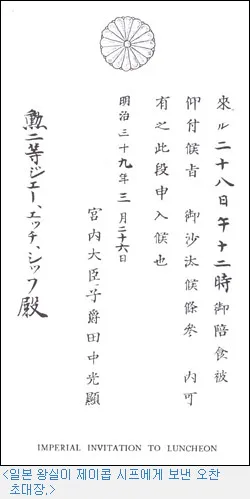 來ル二十八日午十二時御陪食被
仰付候旨 御沙汰候條參 內可
有之此段申入候也
明治三十九年三月二十六日
宮內大臣子爵田中光顯
勲二等ジエー、エッチ、シッフ殿
IMPERIAL INVITATION TO LUNCHEON
<일본 왕실이 제이콥 시프에게 보낸 오찬
초대장.>